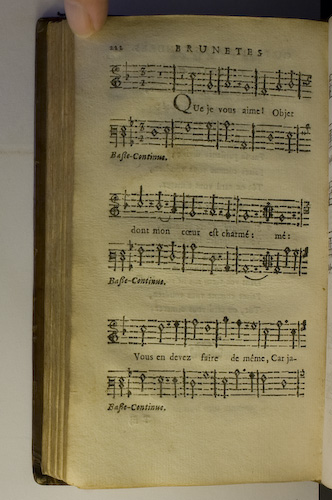 BRUNETES
QUe je vous aime! Objet
Basse-Continue.
dont mon cœur est charmé: mé:
Basse-Continue.
Vous en devez faire de même, Car ja-
Basse-Continue.